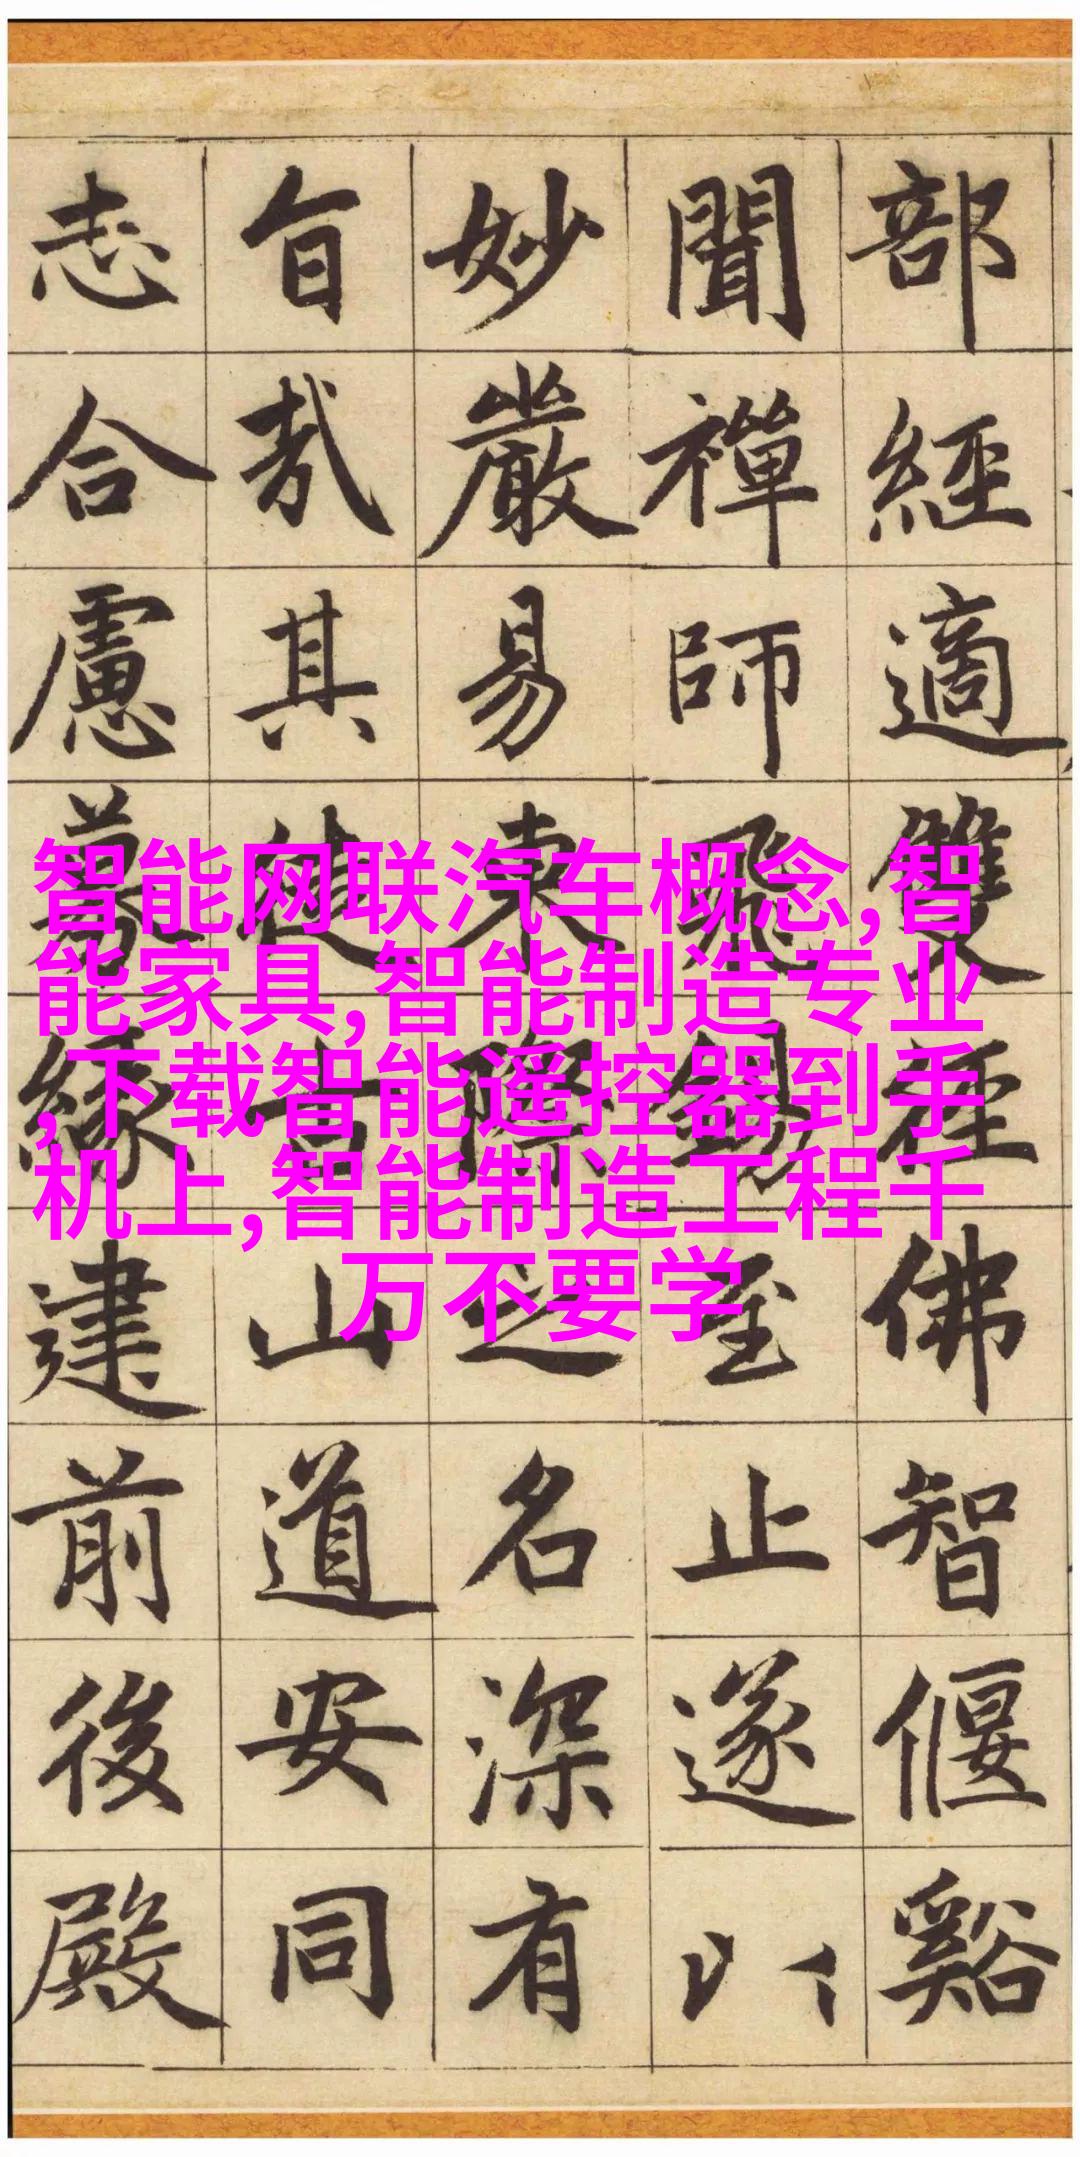 部經適雙徑佛智偃谿
聞禪師飛錫至止遂以
妙嚴易東際之名深有
旨哉其徒古山道安同
志合慮募緣建前後殿
智能网联汽车概念,智
能家具,智能制造专业
,下载智能遥控器到手
机上,智能制造工程千
万不要学